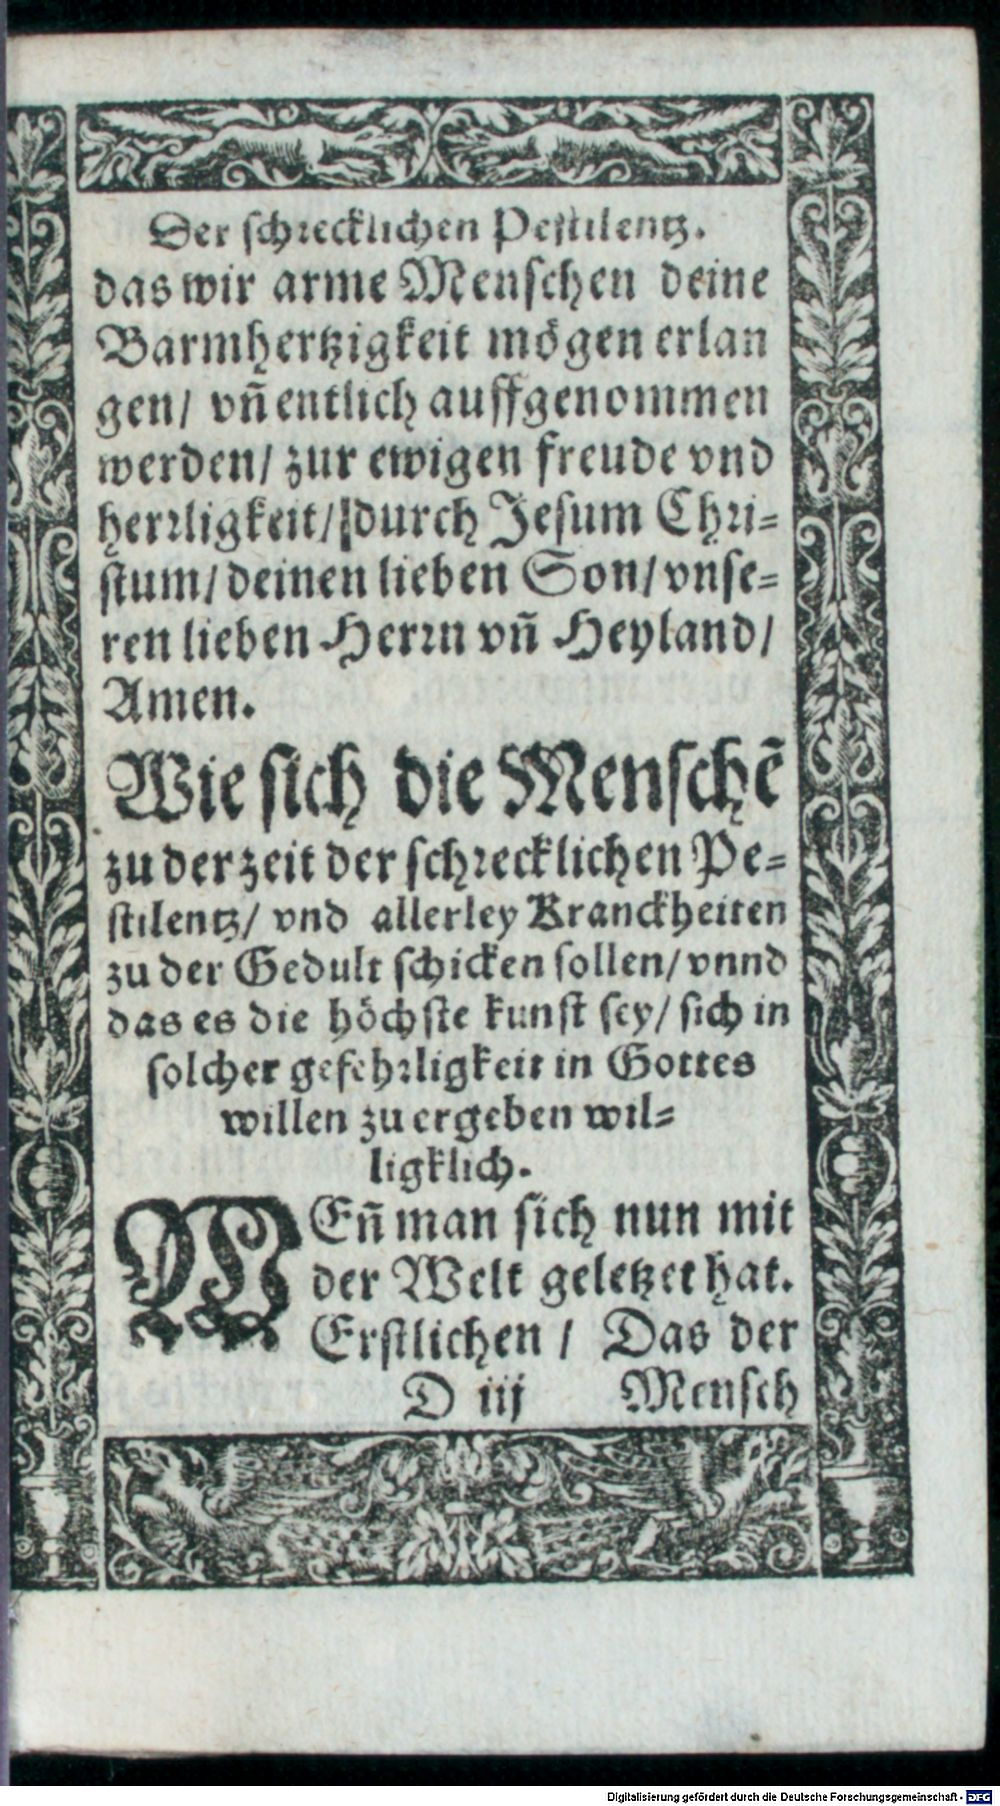 Der schrecklichen Pestilentz.
das wir arme Menschen deine
Barmhertzigkeit mögen erlan
gen/ vñ entlich auffgenommen
werden/ zur ewigen freude vnd
herrligkeit/ durch Jesum Chri=
stum/ deinen lieben Son/ vnse=
ren lieben Herrn vñ Heyland/
Amen.
Wie sich die Menschẽ
zu der zeit der schrecklichen Pe=
stilentz/ vnd allerley Kranckheiten
zu der Gedult schicken sollen/ vnnd
das es die höchste kunst sey/ sich in
solcher gefehrligkeit in Gottes
willen zu ergeben wil=
ligklich.
WEñ man sich nun mit
der Welt geletzet hat.
Erstlichen / Das der
D iij Mensch
Digitalisierung gefördert durch die Deutsche Forschungsgemeinschaft - DFG